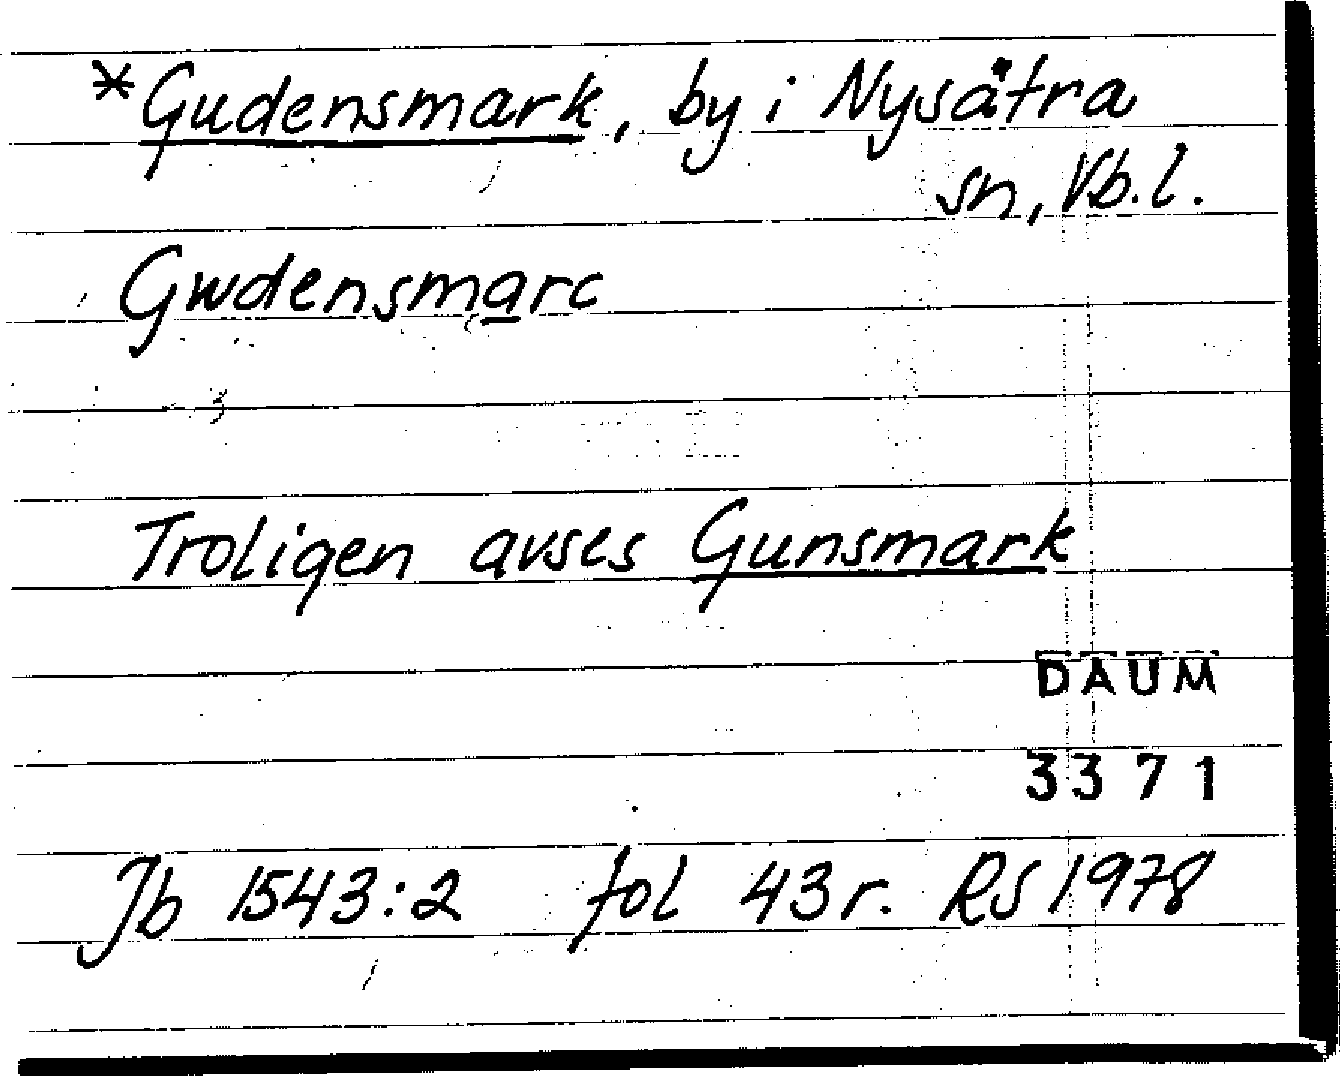 *Gudensmark, by i Nysätra
sn, Vb.l.
Gwdensmarc
Troligen avses Gunsmark
DAUM
3371
Jb 1543:2 fol 43r. RS 1978